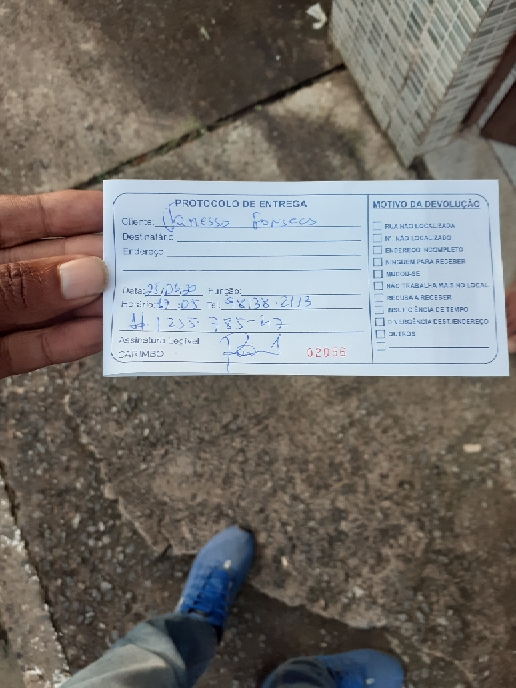 PROTOCOLO DE ENTREGA
Cliente: Vanessa Fonseca
Destinatário
Endereço
Data: Função:
Horário: 17:05 Tel:
Assinatura Legível
CARIMBO 02056
MOTIVO DA DEVOLUÇÃO
RUA NÃO LOCALIZADA
Nº NÃO LOCALIZADO
ENDEREÇO INCOMPLETO
NINGUÉM PARA RECEBER
MUDOU-SE
NÃO TRABALHA MAIS NO LOCAL
RECUSA A RECEBER
INSUFICIÊNCIA DE TEMPO
DIVERGÊNCIA DEST./ENDEREÇO
OUTROS